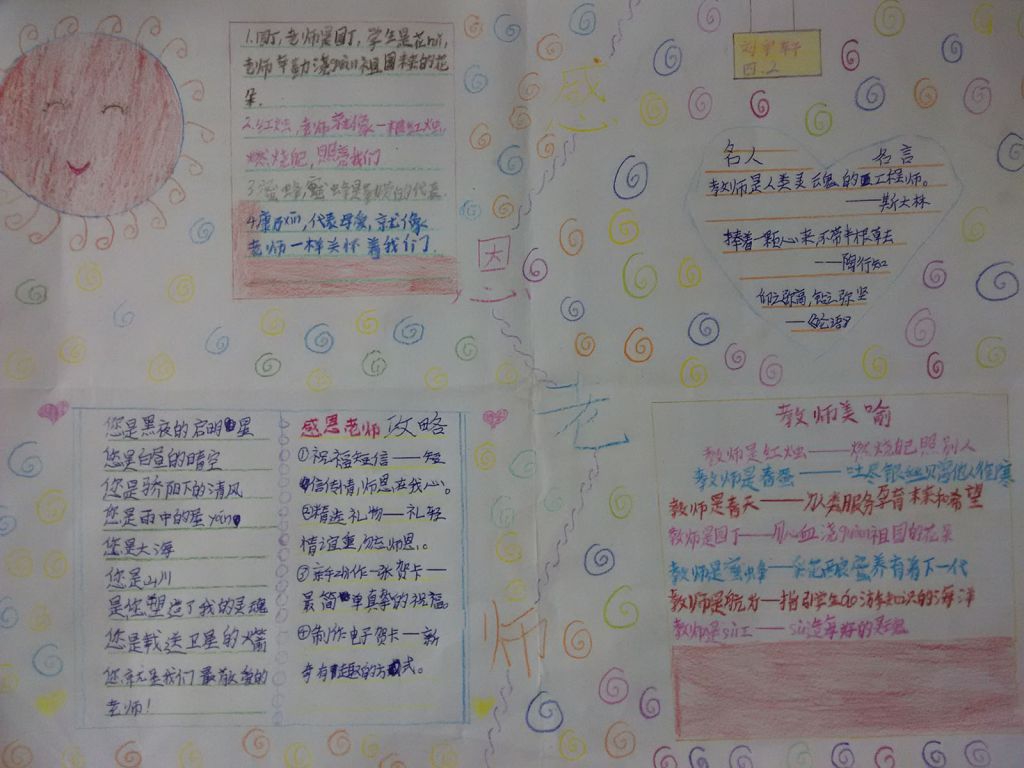 感
恩
老
师
四.2
1.园丁,老师是园丁,学生是花duǒ,
老师辛勤浇guàn祖国未来的花
朵.
2.红烛,老师就像一根红烛,
燃烧自己,照亮我们
3.蜜蜂,蜜蜂是勤劳的代表
4.康乃xīn,代表母爱,就像
老师一样关怀着我们.
名人 名言
教师是人类灵魂的工程师。
——斯大林
捧着一颗心来,不带半根草去
---陶行知
仰之弥高,钻之弥坚
—论语
您是黑夜的启明星
您是白昼的晴空
您是骄阳下的清风
您是雨中的屋
您是大海
您是山川
是您塑造了我的灵魂
您是载送卫星的火箭
您就是我们最敬爱的
老师!
感恩老师攻略
①祝福短信——短
信传情,师恩在我心。
②精选礼物——礼轻
情谊重,勿忘师恩。
③亲手动作一张贺卡——
最简单真挚的祝福
④制作电子贺卡——新
奇有趣的方式。
教师美喻
教师是红烛——燃烧自己照别人
教师是春蚕——吐尽银丝
教师是春天——为人类服务孕育未来和希望
教师是园丁——用心血浇guàn祖国的花朵
教师是蜜蜂——养育着下一代
教师是航为—指引学生知识的海洋
教师是